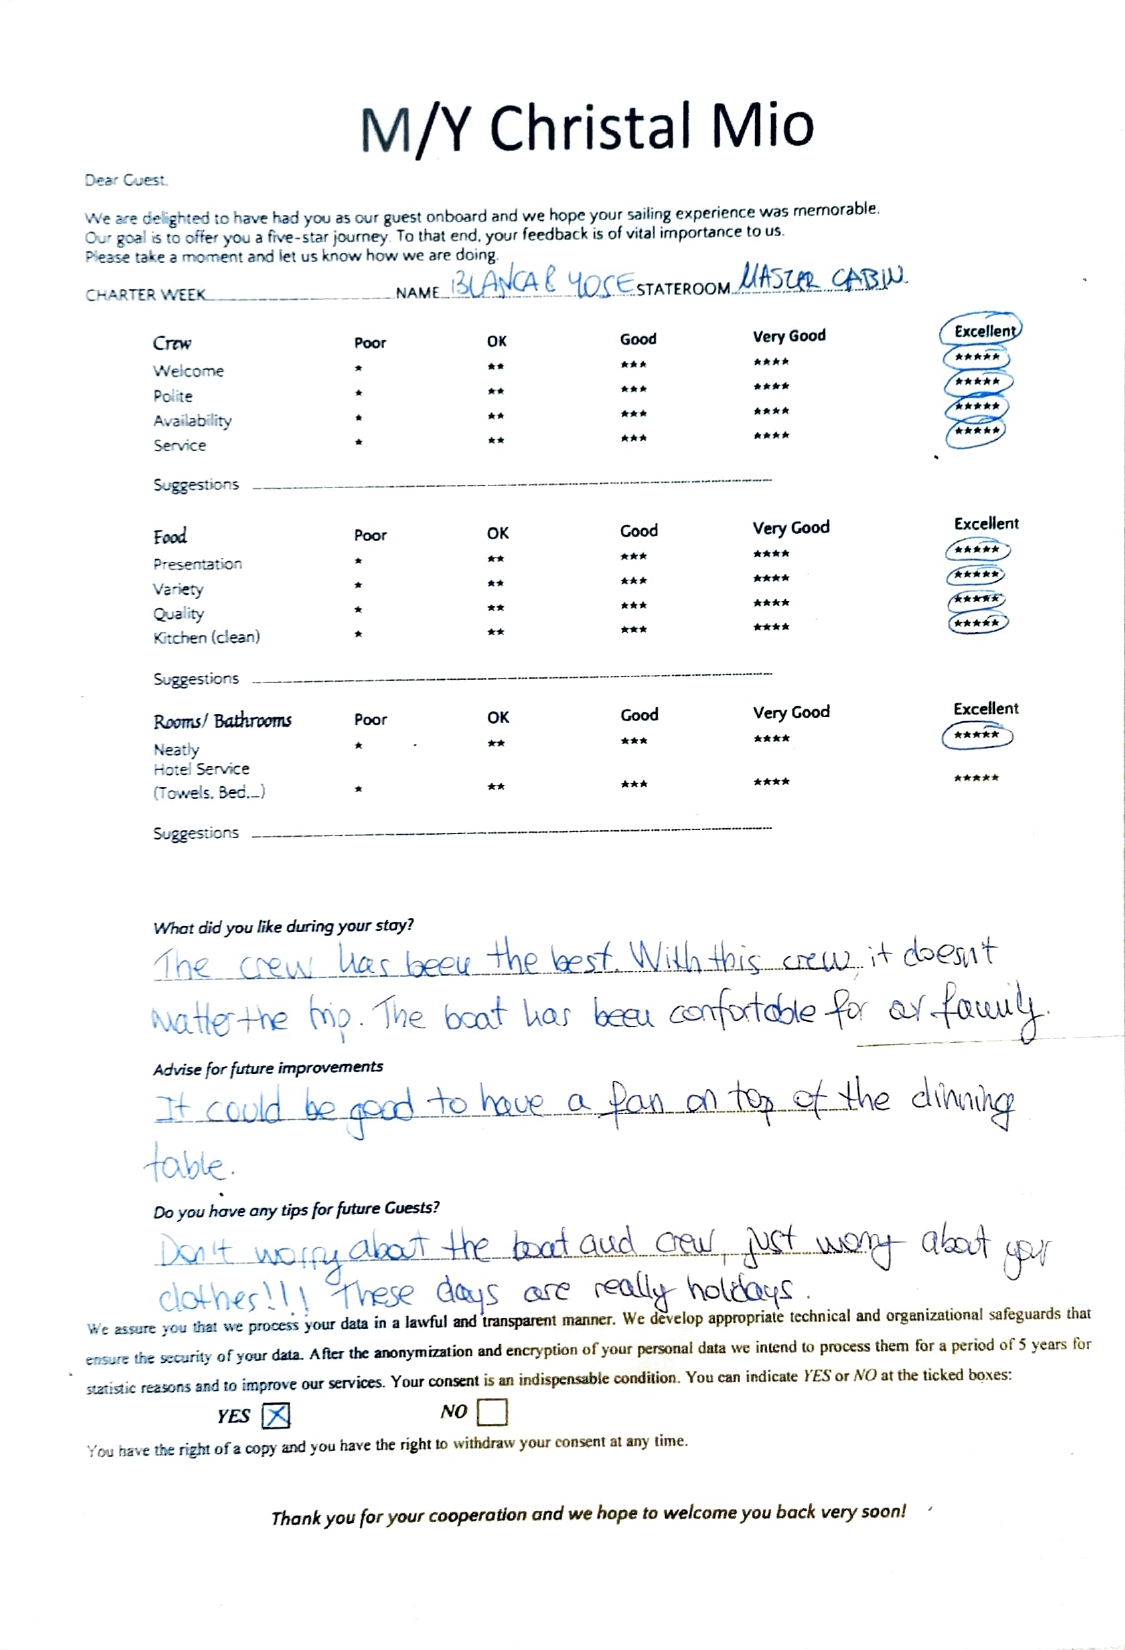 M/Y Christal Mio
Dear Guest,
We are delighted to have had you as our guest onboard and we hope your sailing experience was memorable.
Our goal is to offer you a five-star journey. To that end, your feedback is of vital importance to us.
Please take a moment and let us know how we are doing.
CHARTER WEEK NAME BLANCA & YOSE STATEROOM MASTER CABIN.
Crew Poor OK Good Very Good Excellent
Welcome * ** *** **** *****
Polite * ** *** **** *****
Availability * ** *** **** *****
Service * ** *** **** *****
Suggestions
Food Poor OK Good Very Good Excellent
Presentation * ** *** **** *****
Variety * ** *** **** *****
Quality * ** *** **** *****
Kitchen (clean) * ** *** **** *****
Suggestions
Rooms/ Bathrooms Poor OK Good Very Good Excellent
Neatly * ** *** **** *****
Hotel Service
(Towels, Bed...) * ** *** **** *****
Suggestions
What did you like during your stay?
The crew has been the best. With this crew, it doesn't
matter the trip. The boat has been confortable for our family.
Advise for future improvements
It could be good to have a fan on top of the dinning
table.
Do you have any tips for future Guests?
Don't worry about the boat and crew, just worry about your
clothes!!! These days are really holidays.
We assure you that we process your data in a lawful and transparent manner. We develop appropriate technical and organizational safeguards that
ensure the security of your data. After the anonymization and encryption of your personal data we intend to process them for a period of 5 years for
statistic reasons and to improve our services. Your consent is an indispensable condition. You can indicate YES or NO at the ticked boxes:
YES X NO
You have the right of a copy and you have the right to withdraw your consent at any time.
Thank you for your cooperation and we hope to welcome you back very soon!